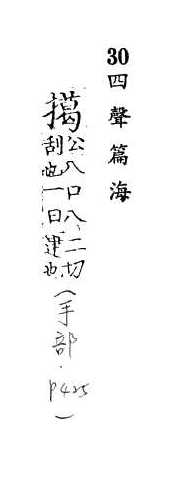 30四聲篇海
擖
公八口八二切
刮也一曰也
(手部.P425)